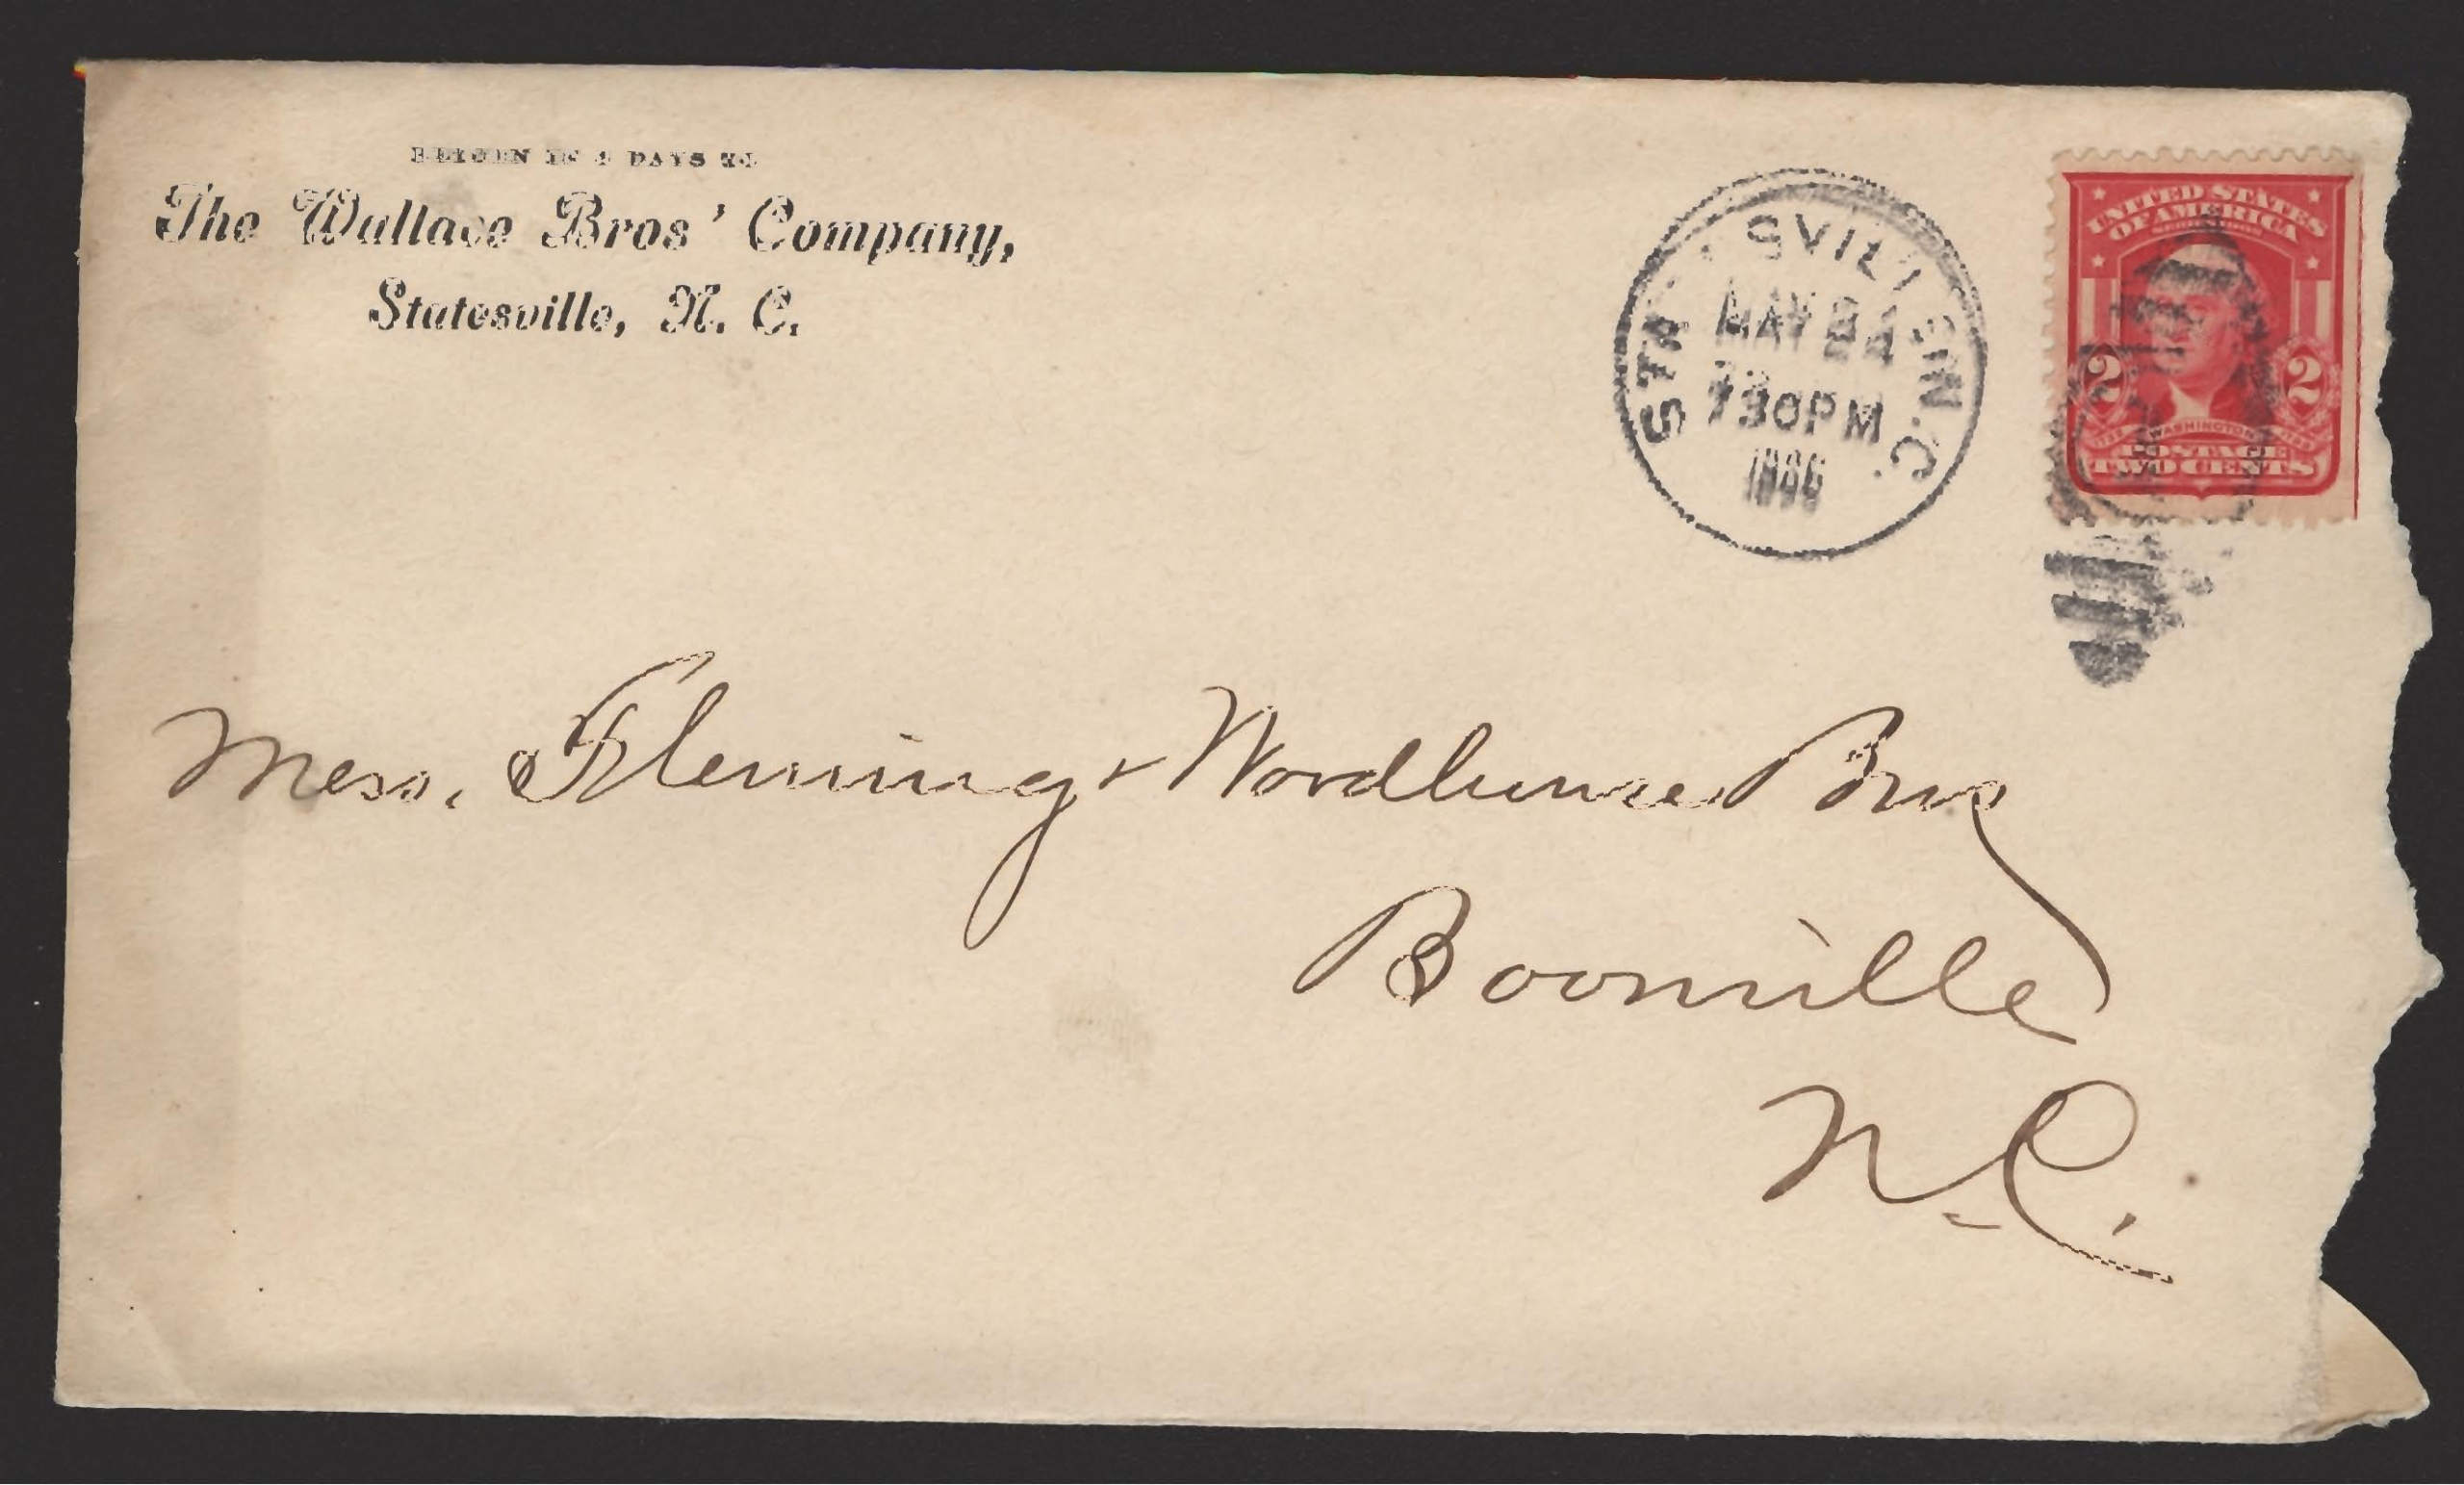 RETURN IN 5 DAYS TO
The Wallace Bros' Company,
Statesville, N. C.
STATESVILLE N.C.
MAY 24
730PM
UNITED STATES
OF AMERICA
SERIES 1902
2 2
WASHINGTON
POSTAGE
TWO CENTS
Mess. Fleming & Woodhouse Bros
Boonville
N.C.